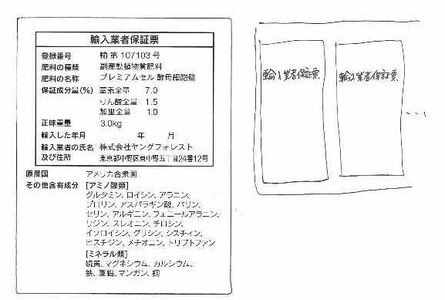 輸入業者保証票
登録番号 輸 第 107103 号
肥料の種類 副産動植物質肥料
肥料の名称 プレミアムセル 酵母細胞壁
保証成分量(%) 窒素全量 7.0
りん酸全量 1.5
加里全量 1.0
正味重量 3.0kg
輸入した年月 年 月
輸入業者の氏名 株式会社ヤングフォレスト
及び住所 東京都中野区東中野五丁目24番12号
原産国 アメリカ合衆国
その他含有成分 [アミノ酸類]
グルタミン、ロイシン、アラニン、
プロリン、アスパラギン酸、バリン、
セリン、アルギニン、フェニールアラニン、
リジン、スレオニン、チロシン、
イソロイシン、グリシン、シスチィン、
ヒスチジン、メチオニン、トリプトファン
[ミネラル類]
硫黄、マグネシウム、カルシウム、
鉄、亜鉛、マンガン、銅
輸入業者保証票
輸入業者保証票